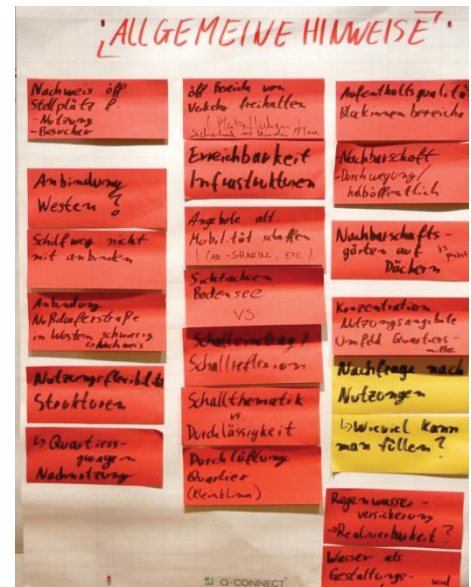 "ALLGEMEINE HINWEISE"
Nachweis öff
Stellplätz f.
- Nutzung
- Besucher
Anbindung
Westen?
Schilfweg nicht
mit anbinden
Anbindung
Nußdorferstraße
im Westen schwierig
Nutzungsflexibilit
Strukturen
↳ Quartiers-
garagen
Nachnutzung
öff Bereiche von
Verkehr freihalten
Erreichbarkeit
Infrastrukturen
Angebote alt
Mobilität schaffen
(CAR-SHARING, ETC)
Sichtachsen
Bodensee
VS
Schalleintrag/
Schallreflexion
Schallthematik
vs.
Durchlässigkeit
Durchlüftung
Quartier
(Kleinklima)
Aufenthaltsqualitä
Blockinnenbereiche
Nachbarschaft
- Durchwegung/
halböffentlich
Nachbarschafts-
gärten auf
Dächern
vs. privat
Konzentration
Nutzungsangebote
Umfeld Quartiers-
mitte
Nachfrage nach
Nutzungen
↳ Wieviel kann
man füllen?
Regenwasser-
versickerung
→ Realisierbarkeit?
Wasser als
Gestaltungs-
Q-CONNECT